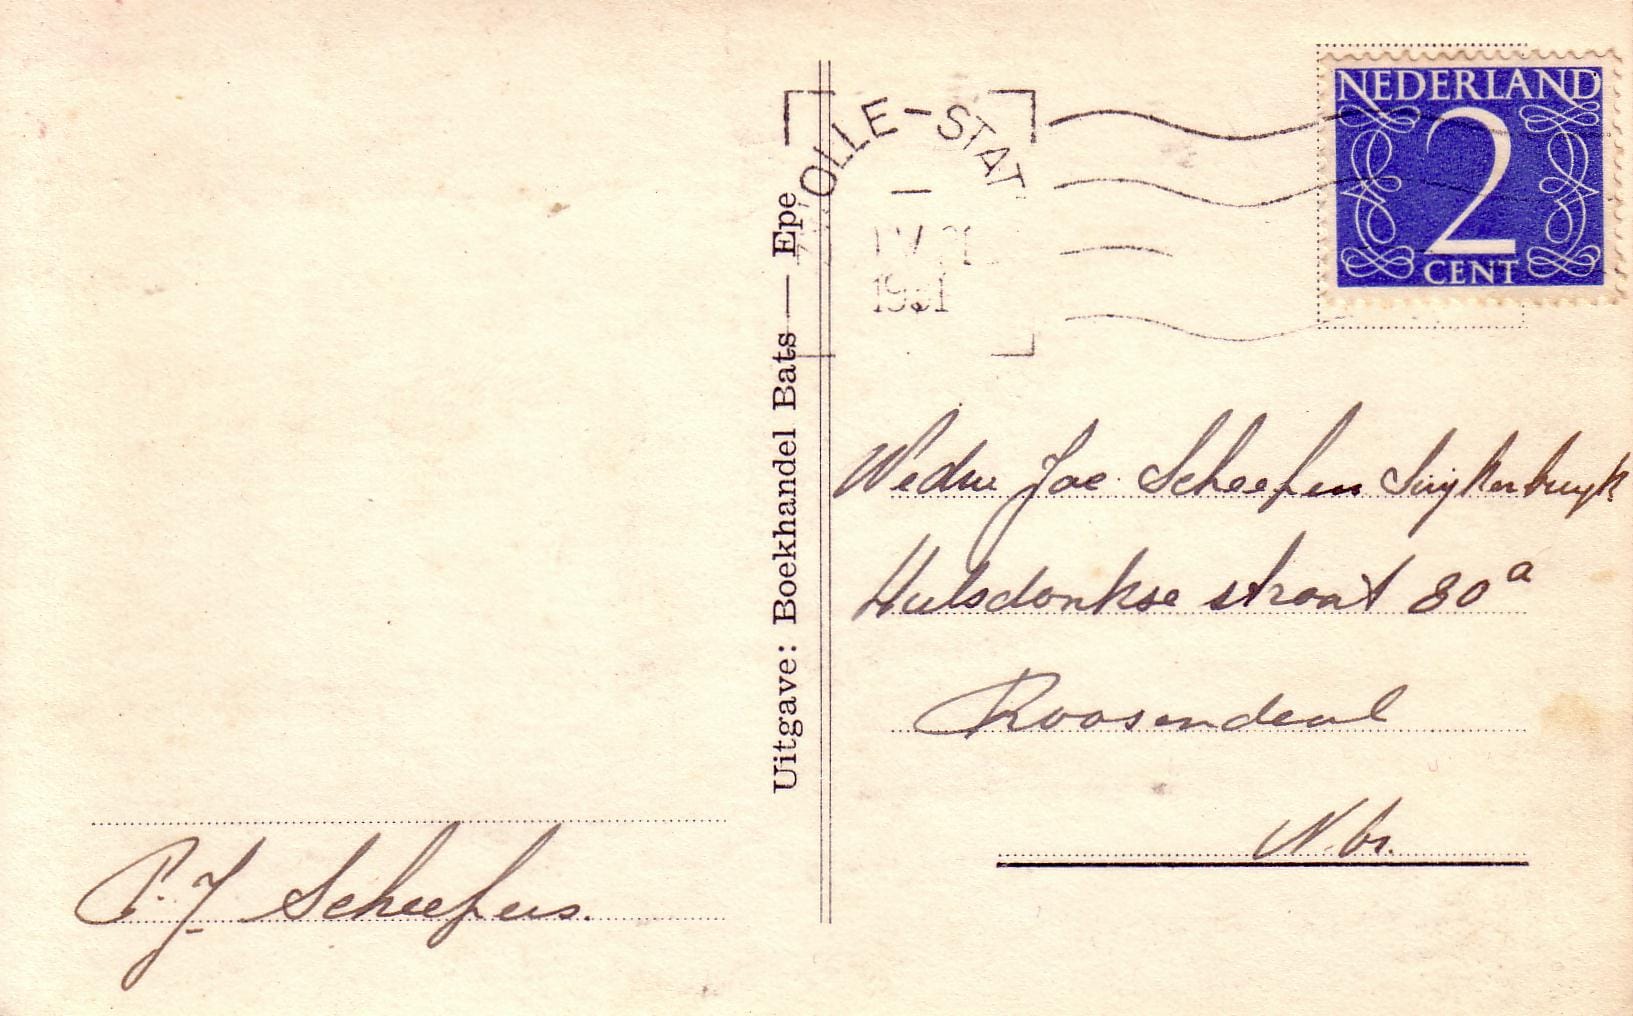 OLLE-STAT
NEDERLAND
2
CENT
Uitgave: Boekhandel Bats — Epe
Wedue Jac Scheepens Suijkerbuyk
Hulsdonkse straat 80a
Roosendaal
N.br.
P.J Scheepens.